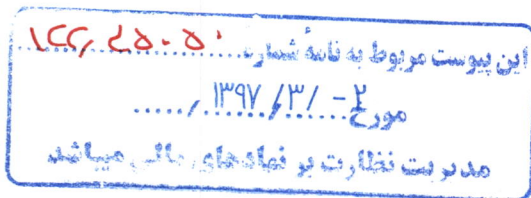 این پیوست مربوط به نامهٔ شماره
مورخ ۱۳۹۷/۳/-۲
مدیریت نظارت بر نهادهای مالی میباشد